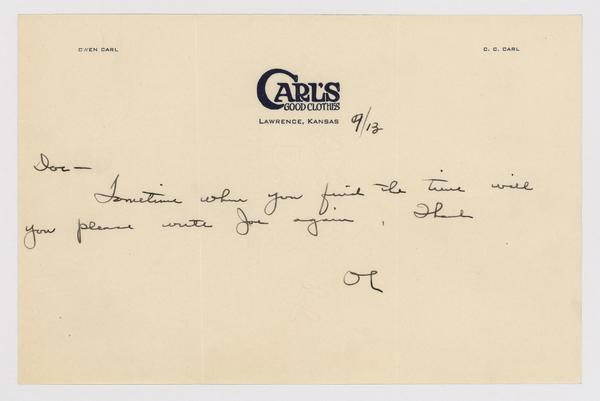 OWEN CARL
C. C. CARL
CARL'S
GOOD CLOTHES
LAWRENCE, KANSAS 9/13
Doc—
Sometime when you find the time will
you please write Joe again, Thank
OC